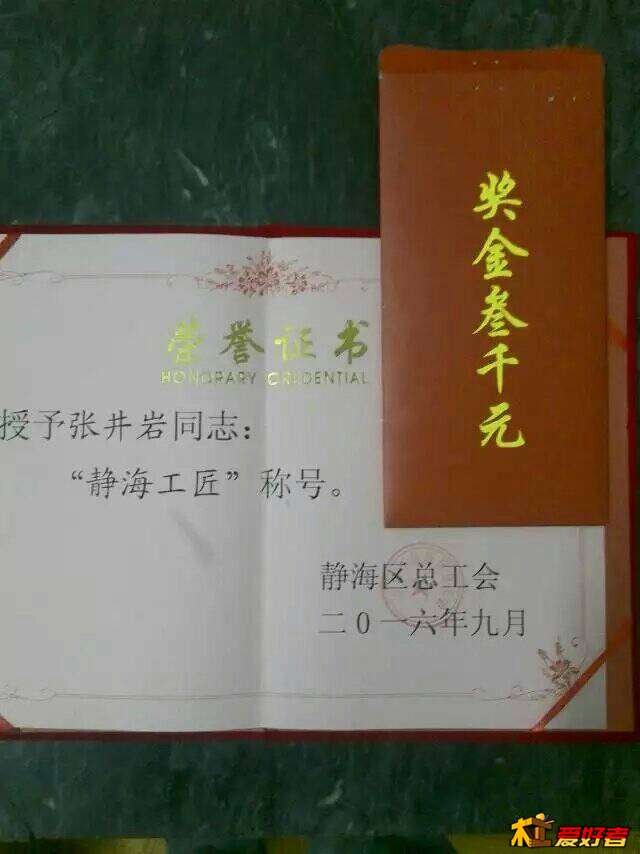 奖金叁千元
荣誉证书
HONORARY CREDENTIAL
授予张井岩同志：
“静海工匠”称号。
静海区总工会
二0一六年九月
木工爱好者